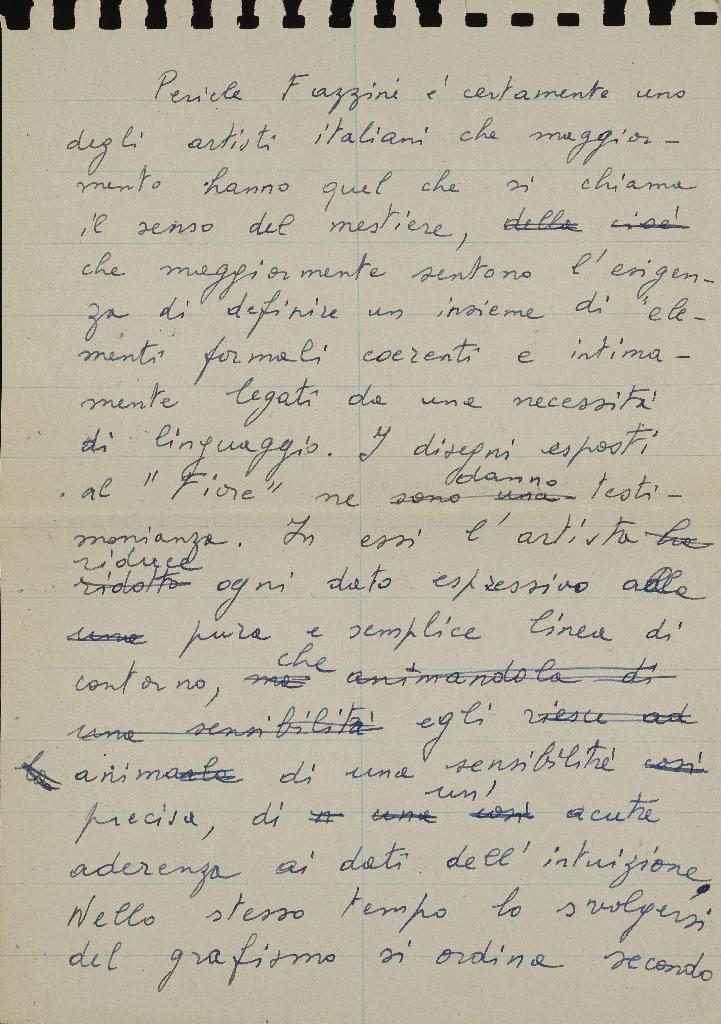 Pericle Fazzini è certamente uno
degli artisti italiani che maggior-
mente hanno quel che si chiama
il senso del mestiere, della cioè
che maggiormente sentono l'esigen-
za di definire un insieme di ele-
menti formali coerenti e intima-
mente legati da una necessità
di linguaggio. I disegni esposti
danno
al "Fiore" ne sono una testi-
monianza. In essi l'artista ha
riduce
ridotto ogni dato espressivo alla
una pura e semplice linea di
che
contorno, ma animandola di
una sensibilità egli riesce ad
la animarla di una sensibilità così
un'
precisa, di n una così acuta
aderenza ai dati dell'intuizione.
Nello stesso tempo lo svolgersi
del grafismo si ordina secondo